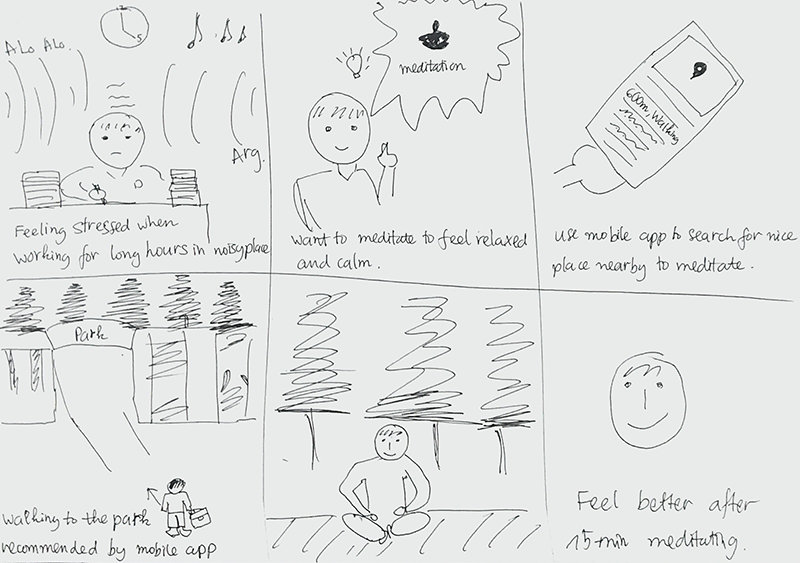 ALo ALo.
Arg.
Feeling stressed when
working for long hours in noisy place
meditation
want to meditate to feel relaxed
and calm.
600m, Walking
use mobile app to search for nice
place nearby to meditate.
Park
walking to the park
recommended by mobile app
Feel better after
15-min meditating.